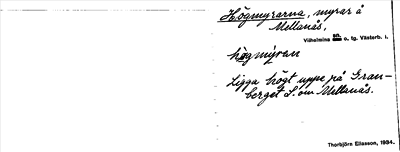 Högmyrarna, myrar å
Mellanås,
Vilhelmina sn. o. tg. Västerb. l.
högmýran
Ligga högt uppe på Gran-
berget S. om Mellanås.
Thorbjörn Eliasson, 1934.